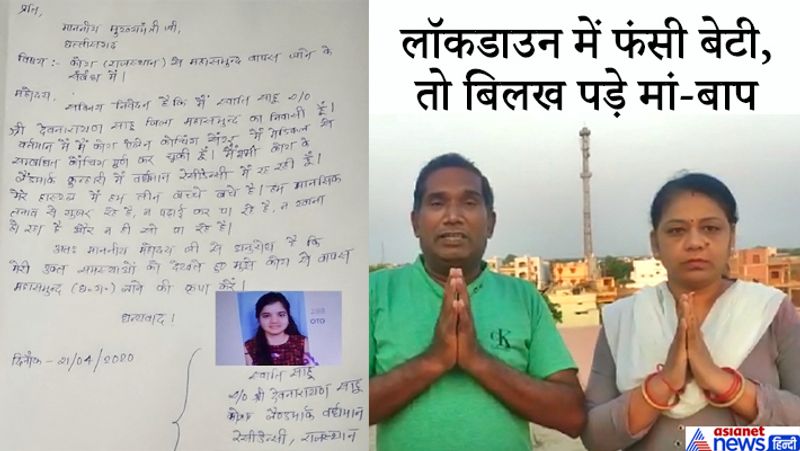 प्रति,
माननीय मुख्यमंत्री जी,
छत्तीसगढ़
विषय :- कोटा (राजस्थान) से महासमुन्द वापस जाने के
संबंध में।
महोदय,
सविनय निवेदन है कि मैं स्वाति साहू D/O
श्री देवनारायण साहू जिला महासमुन्द का निवासी हूँ।
वर्तमान में मैं कोटा कोचिंग सेंटर में मेडिकल से
सम्बन्धित कोचिंग पूर्ण कर चुकी हूँ। मैं अभी कोटा के
लैंडमार्क कुन्हारी में वर्धमान रेसीडेन्सी में रह रही हूँ।
मेरे हास्टल में हम तीन बच्चे बचे है। हम मानसिक
तनाव से गुजर रहे है, न पढ़ाई कर पा रहे है, न खाना
हो रहा है और न ही सो पा रहे है।
अतः माननीय महोदय जी से अनुरोध है कि
मेरी उक्त समस्याओं को देखते हुए मुझे कोटा से वापस
महासमुन्द (छ०ग०) लाने की कृपा करें।
धन्यवाद!
दिनाँक - 21/04/2020
स्वाति साहू
D/O श्री देवनारायण साहू
कोटा लैंडमार्क वर्धमान
रेसीडेन्सी, राजस्थान
OTO
लॉकडाउन में फंसी बेटी,
तो बिलख पड़े मां-बाप
CK
asianet
news हिन्दी